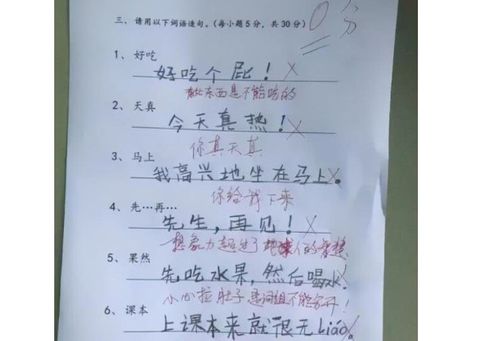 三、请用以下词语造句。（每小题5分，共30分）
0分
1、好吃
好吃个屁！
此东西是不能吃的
2、天真
今天真热！
你真天真
3、马上
我高兴地坐在马上。
你给我下来
4、先…再…
先生，再见！
想象力超出了地球人的
5、果然
先吃水果，然后喝水。
小心拉肚子 是词组不能分开！
6、课本
上课本来就很无liáo。